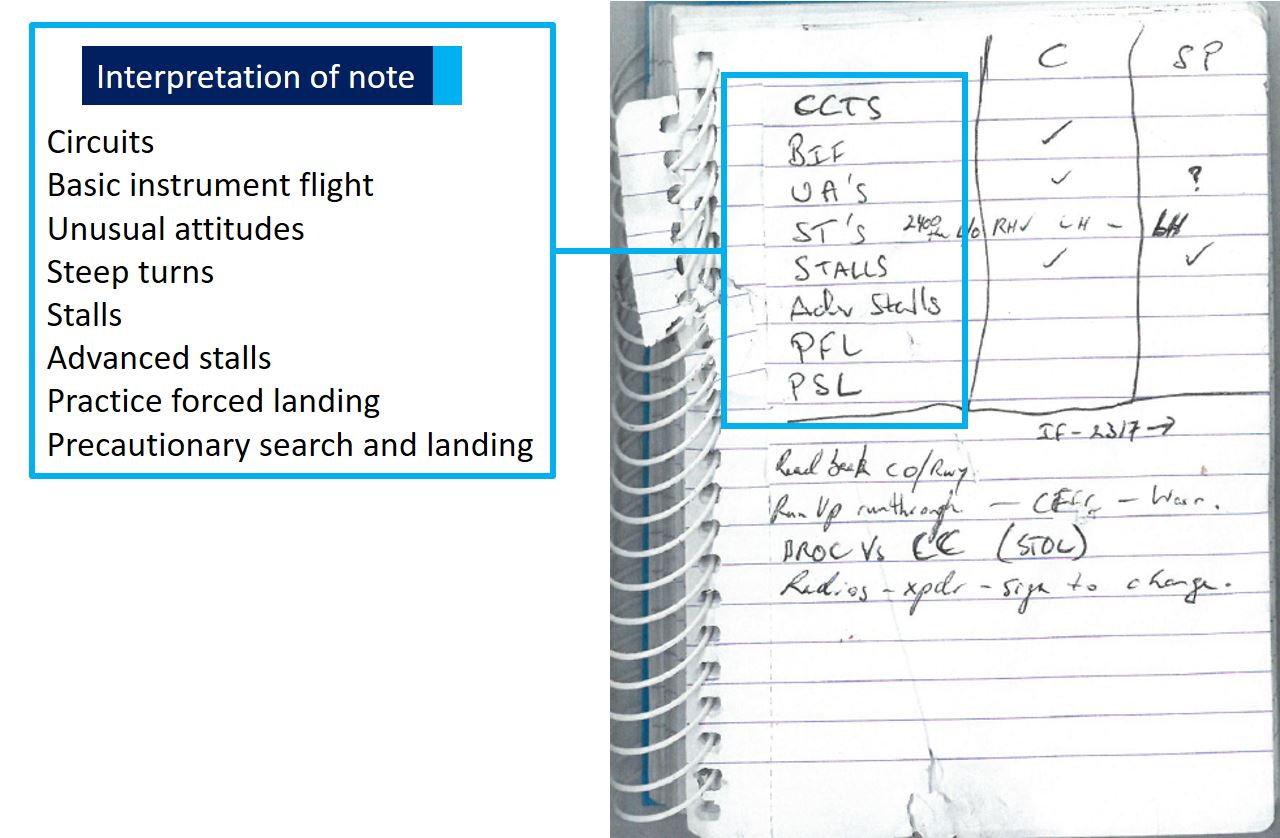 Interpretation of note
Circuits
Basic instrument flight
Unusual attitudes
Steep turns
Stalls
Advanced stalls
Practice forced landing
Precautionary search and landing
C SP
CCTS
BIF ✓
UA's ✓ ?
ST's 2400 RH✓ LH – LH
STALLS ✓ ✓
Adv Stalls
PFL
PSL
IF - 2317 →
Read back CO/Rwy
Run Up runthrough — –
BROC Vs CC (STOL)
Radios - xpdr - sign to change.